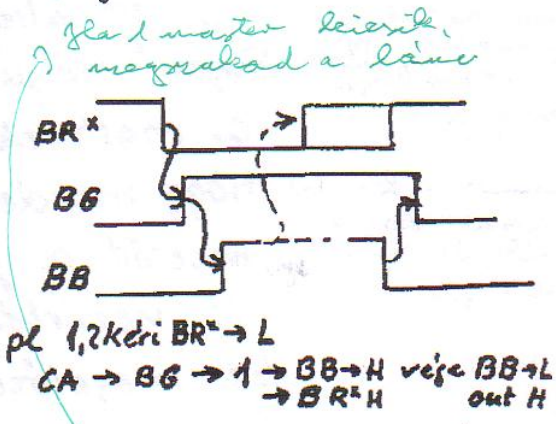 Ha 1 master kiesik,
megszakad a lánc
BR*
BG
BB
pl 1,2 kéri BR* → L
CA → BG → 1 → BB→H vége BB→L
→ BR* H out H